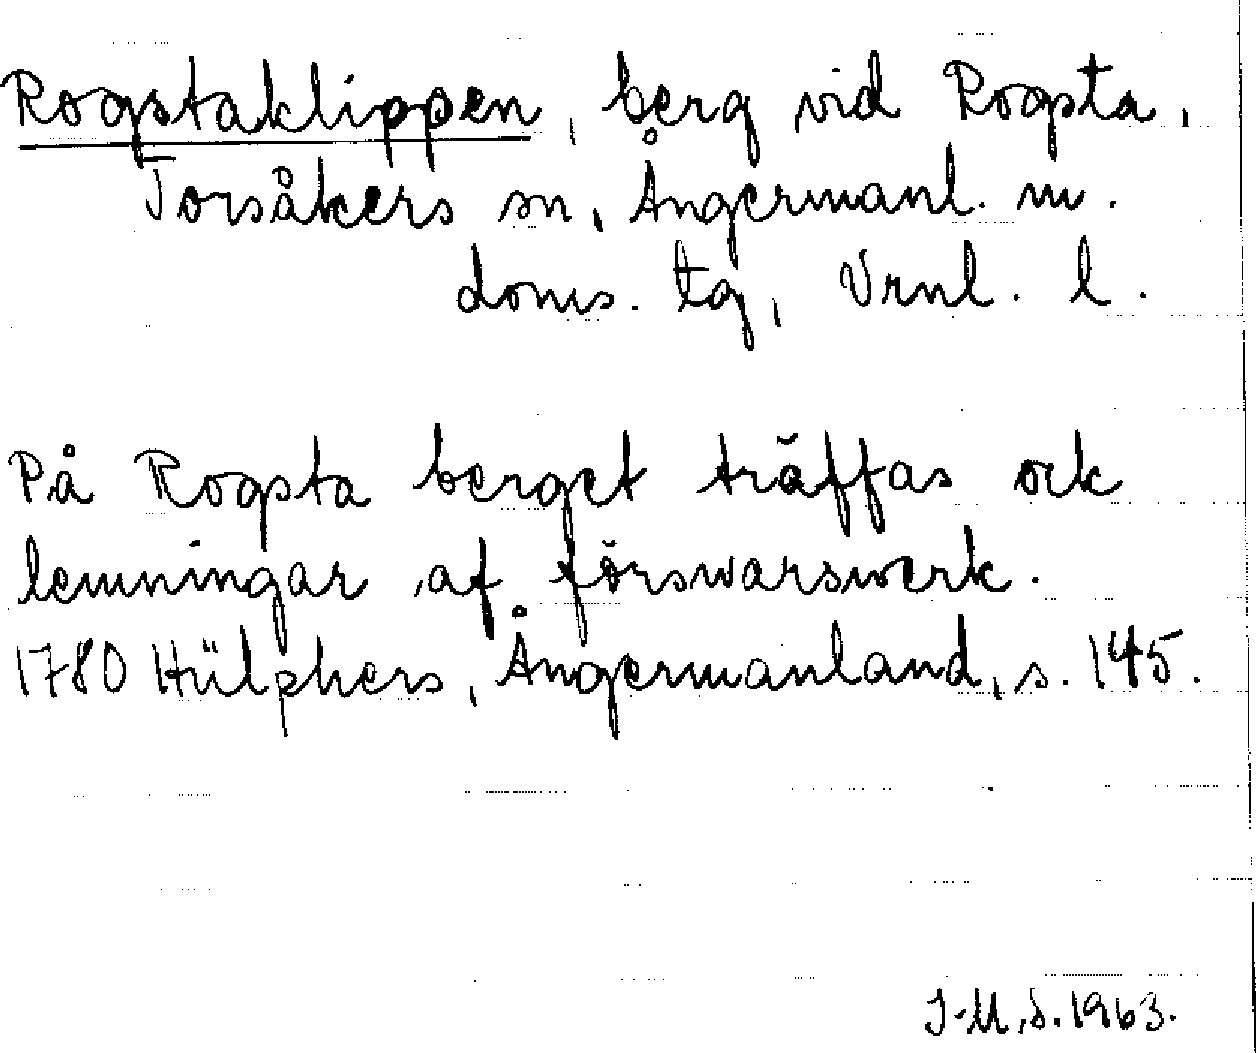 Rogstaklippen, berg vid Rogsta,
Torsåkers sn, Ångermanl. m.
doms. tg, Vrnl. l.
På Rogsta berget träffas ock
lemningar af förswarswerk.
1780 Hülphers, Ångermanland, s. 145.
I-M.S. 1963.